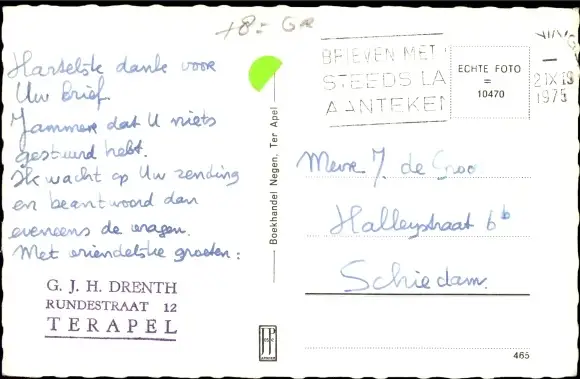 +8= Gr
Hartelske danke voor
Uw brief.
Jammere dat U niets
gestuurd hebt.
Ik wacht op Uw zending
en beantwoord dan
eveneens de vragen.
Met vriendelske groeten:
G. J. H. DRENTH
RUNDESTRAAT 12
TERAPEL
Boekhandel Negen, Ter Apel
BRIEVEN MET
STEEDS LA
AANTEKEN
ECHTE FOTO
=
10470
21 IX
1975
Mevr J. de Groo
Halleystraat 6b
Schiedam.
JP
465